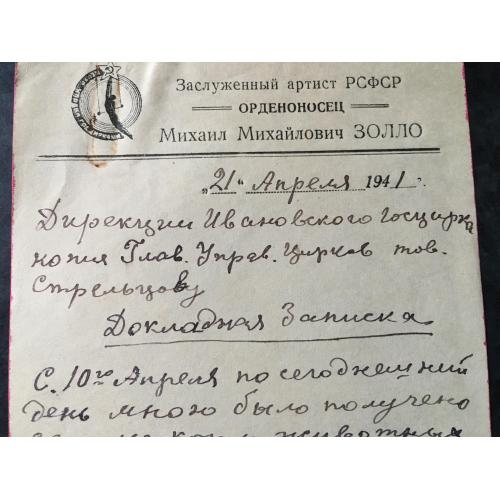 Заслуженный артист РСФСР
ОРДЕНОНОСЕЦ
Михаил Михайлович ЗОЛЛО
„21“ Апреля 1941 г.
Дирекции Ивановского Госцирка
копия Глав. Управ. Цирков тов.
Стрельцову
Докладная Записка
С. 10го Апреля по сегоднешний
день мною было получено
животных